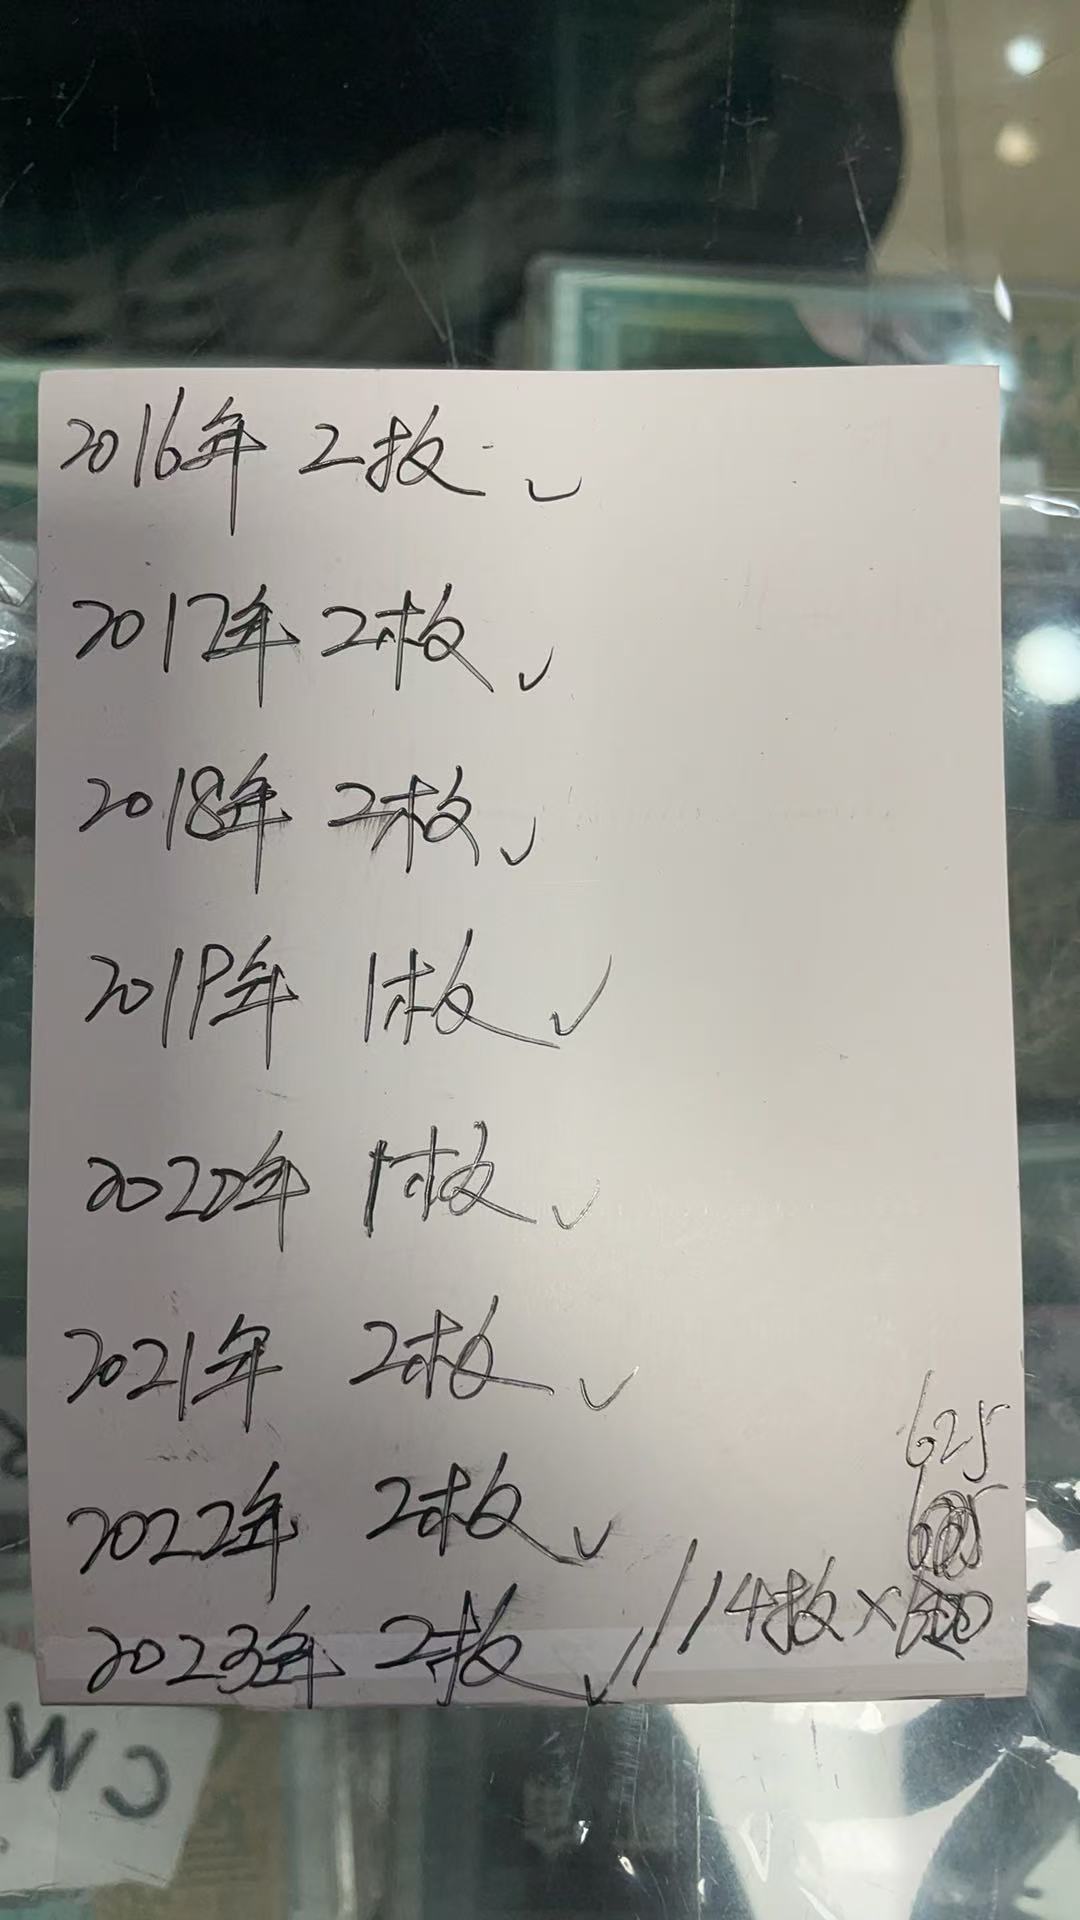 2016年 2枚
2017年 2枚
2018年 2枚
2019年 1枚
2020年 1枚
2021年 2枚
2022年 2枚
2023年 2枚
14枚×
625